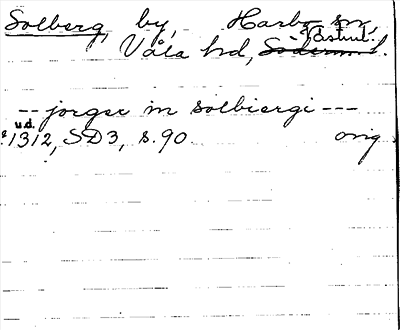 Solberg, by, Harbo sn,
Västml.
Våla hd, Söderm. l.
-- jorgze in solbiergi ---
u.d.
1312, SD3, s. 90 orig